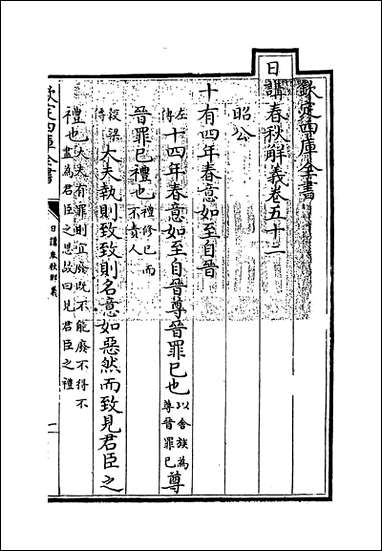 欽定四庫全書
日講春秋解義卷五十二
昭公
十有四年春意如至自晉
左傳十四年春意如至自晉尊晉罪已也以舍族為尊晉罪已尊
晉罪已禮也禮修已而不責人
穀梁傳大夫執則致致則名意如惡然而致見君臣之
禮也大夫有罪則宜廢既不能廢不得不盡為君臣之恩故曰見君臣之禮
欽定四庫全書
日講春秋解義
一